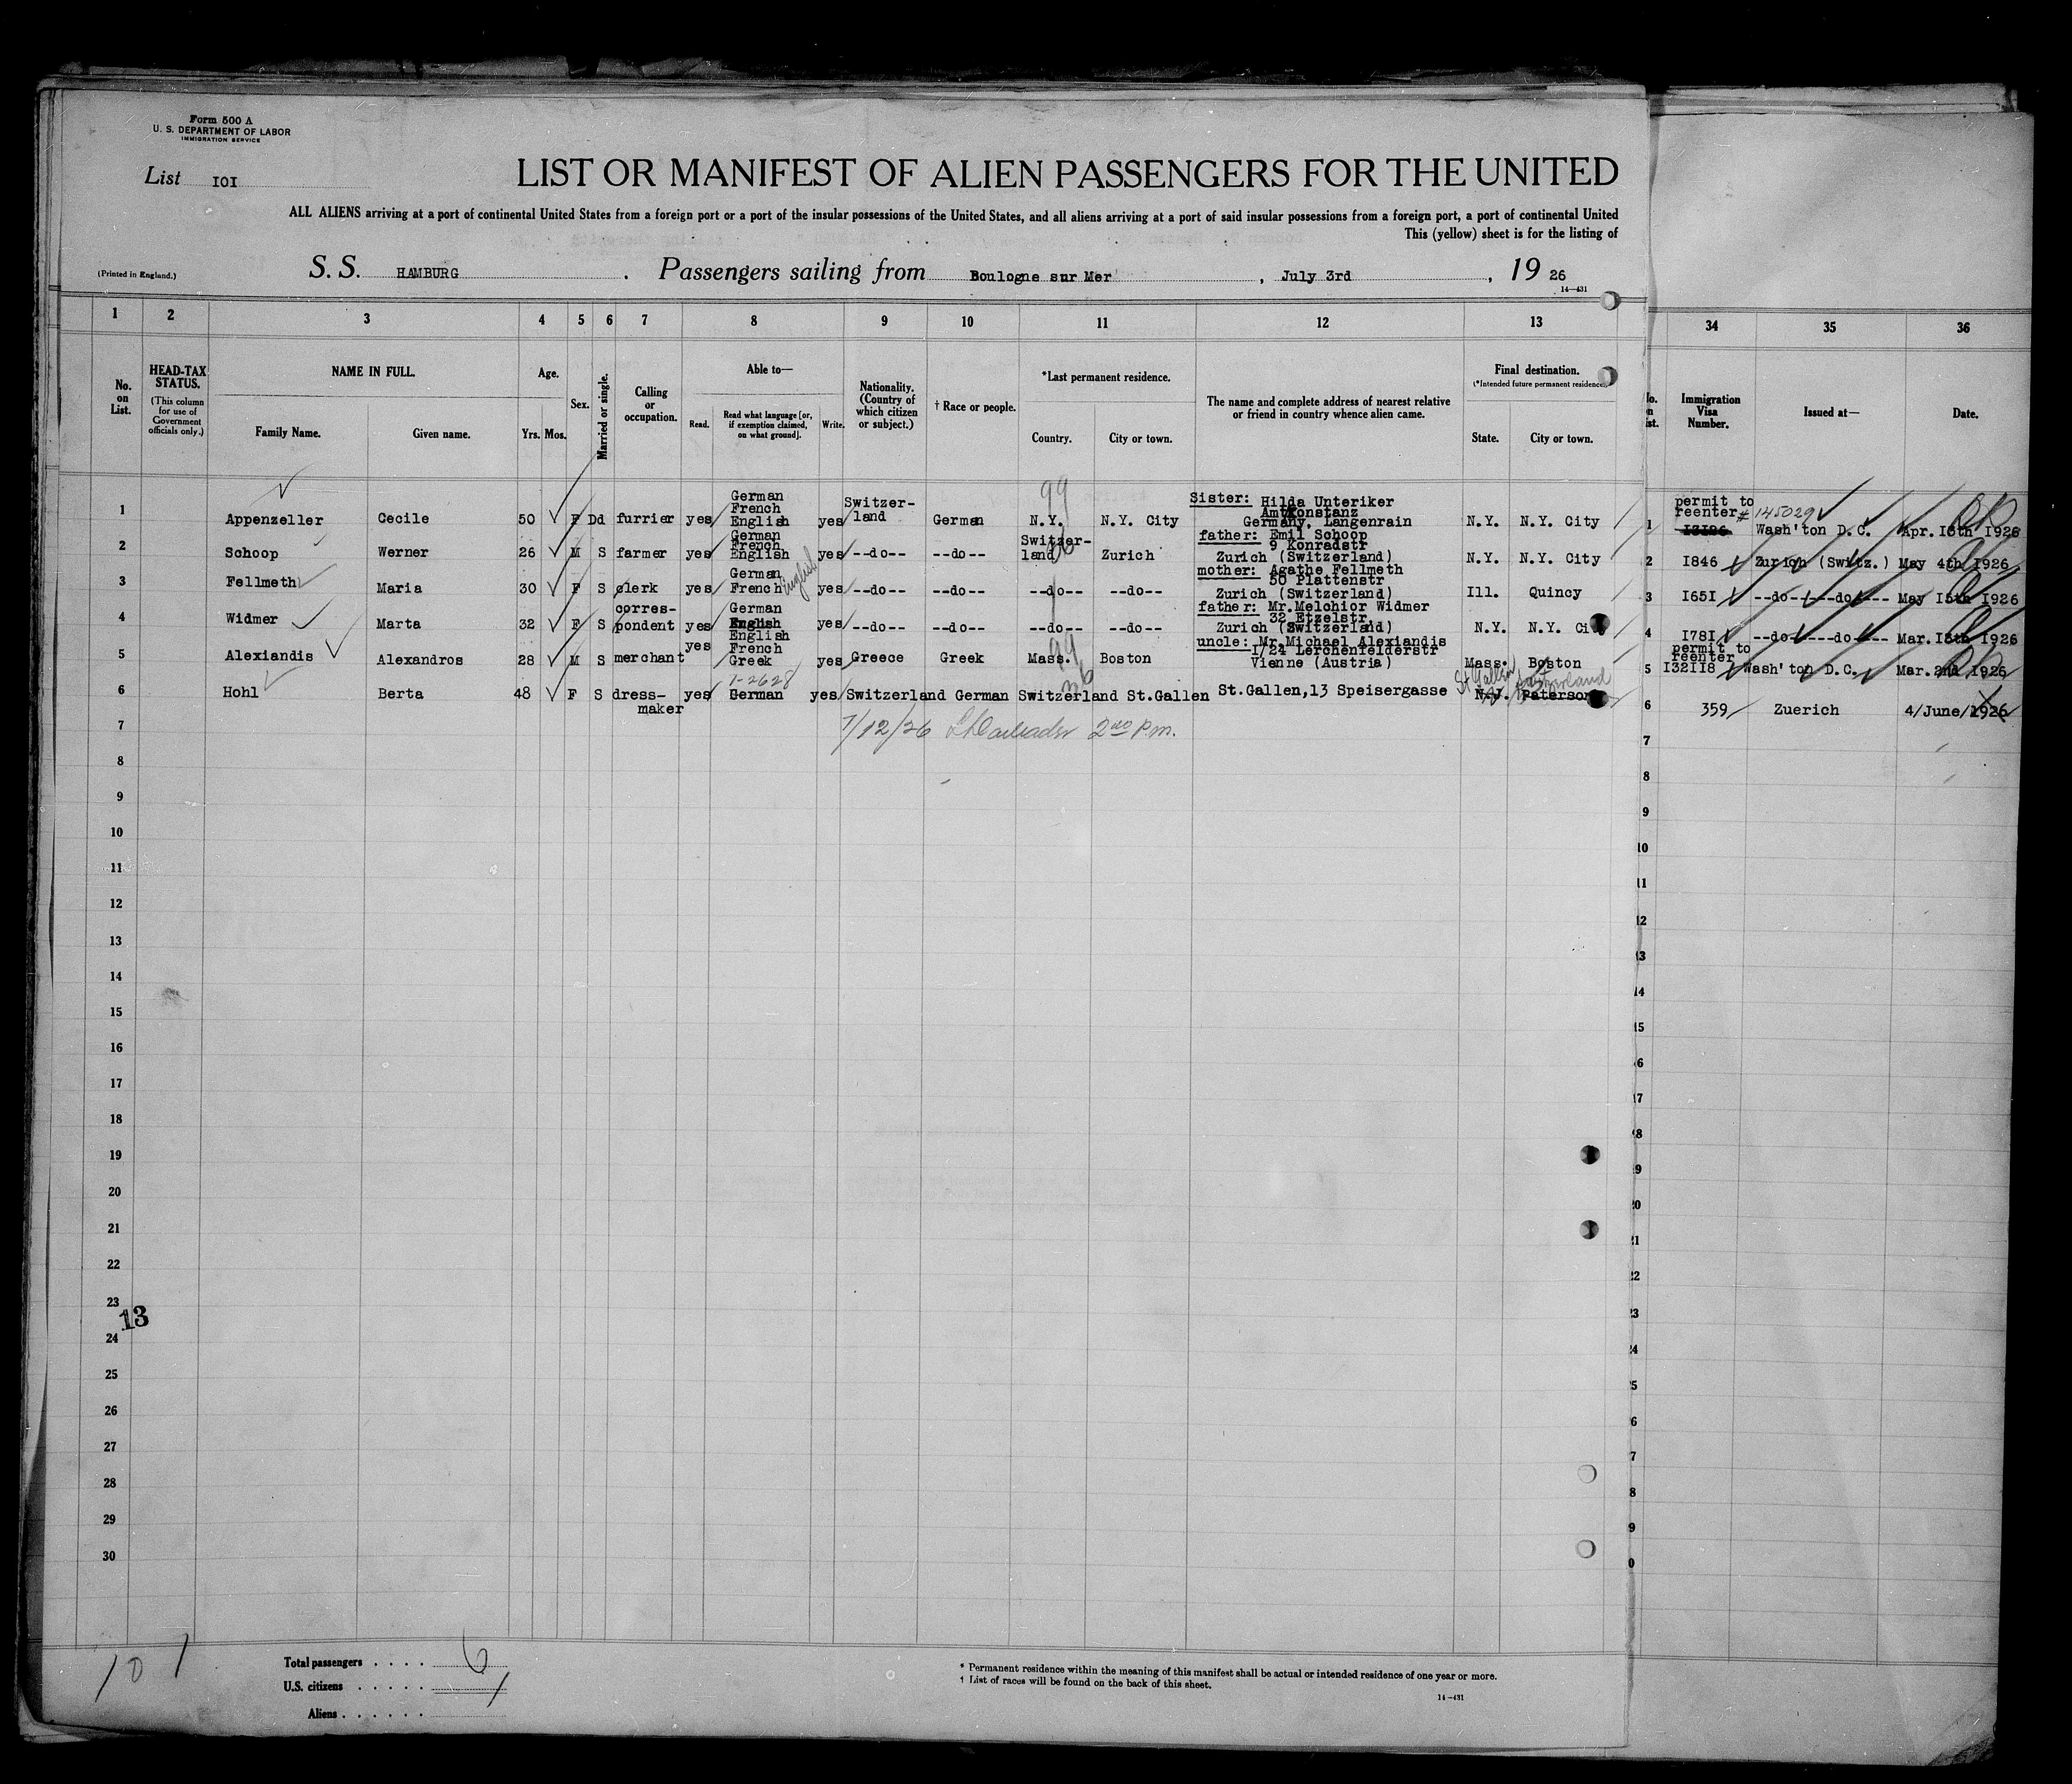 Form 500 A
U. S. DEPARTMENT OF LABOR
IMMIGRATION SERVICE
List IOI
LIST OR MANIFEST OF ALIEN PASSENGERS FOR THE UNITED
ALL ALIENS arriving at a port of continental United States from a foreign port or a port of the insular possessions of the United States, and all aliens arriving at a port of said insular possessions from a foreign port, a port of continental United
This (yellow) sheet is for the listing of
(Printed in England.)
S. S. HAMBURG . Passengers sailing from Boulogne sur Mer , July 3rd , 19 26
14—431
1 2 3 4 5 6 7 8 9 10 11 12 13 34 35 36
No. on List.
HEAD-TAX STATUS.
(This column for use of Government officials only.)
NAME IN FULL.
Family Name. Given name.
Age.
Yrs. Mos.
Sex.
Married or single.
Calling or occupation.
Able to—
Read. Read what language [or, if exemption claimed, on what ground]. Write.
Nationality. (Country of which citizen or subject.)
† Race or people.
*Last permanent residence.
Country. City or town.
The name and complete address of nearest relative or friend in country whence alien came.
Final destination.
(*Intended future permanent residence.)
State. City or town.
Immigration Visa Number.
Issued at—
Date.
1 Appenzeller Cecile 50 F Dd furrier yes German French English yes Switzer-land German N.Y. N.Y. City Sister: Hilda Unteriker Amt Konstanz Germany, Langenrain N.Y. N.Y. City
99
2 Schoop Werner 26 M S farmer yes German French English yes --do-- --do-- Switzer-land Zurich father: Emil Schoop 9 Konradstr Zurich (Switzerland) N.Y. N.Y. City
3 Fellmeth Maria 30 F S clerk yes German French English yes --do-- --do-- --do-- --do-- mother: Agathe Fellmeth 50 Plattenstr Zurich (Switzerland) Ill. Quincy
4 Widmer Marta 32 F S corres-pondent yes German English yes --do-- --do-- --do-- --do-- father: Mr.Melchior Widmer 32 Etzelstr Zurich (Switzerland) N.Y. N.Y. City
5 Alexiandis Alexandros 28 M S merchant yes English French Greek yes Greece Greek Mass. Boston uncle: Mr.Michael Alexiandis I/24 Lerchenfelderstr Vienne (Austria) Mass. Boston
99
1-2628
6 Hohl Berta 48 F S dress-maker yes German yes Switzerland German Switzerland St.Gallen St.Gallen,13 Speisergasse N.J. Paterson
St Gallen Switzerland
7/12/26 2nd P.m.
1 permit to reenter # 145029 Wash'ton D.C. Apr. I5th I926
OK
2 I846 Zurich (Switz.) May 4th I926
3 I65I --do-- --do-- May I5th I926
4 I78I --do-- --do-- Mar. I8th I926
5 permit to reenter I32II8 Wash'ton D.C. Mar. 2nd I926
6 359 Zuerich 4/June/1926
7
8
9
10
11
12
13
14
15
16
17
18
19
20
21
22
23
24
25
26
27
28
29
30
13
101
Total passengers . . . . 6
U.S. citizens . . . . .
Aliens . . . . . .
* Permanent residence within the meaning of this manifest shall be actual or intended residence of one year or more.
† List of races will be found on the back of this sheet.
14—431